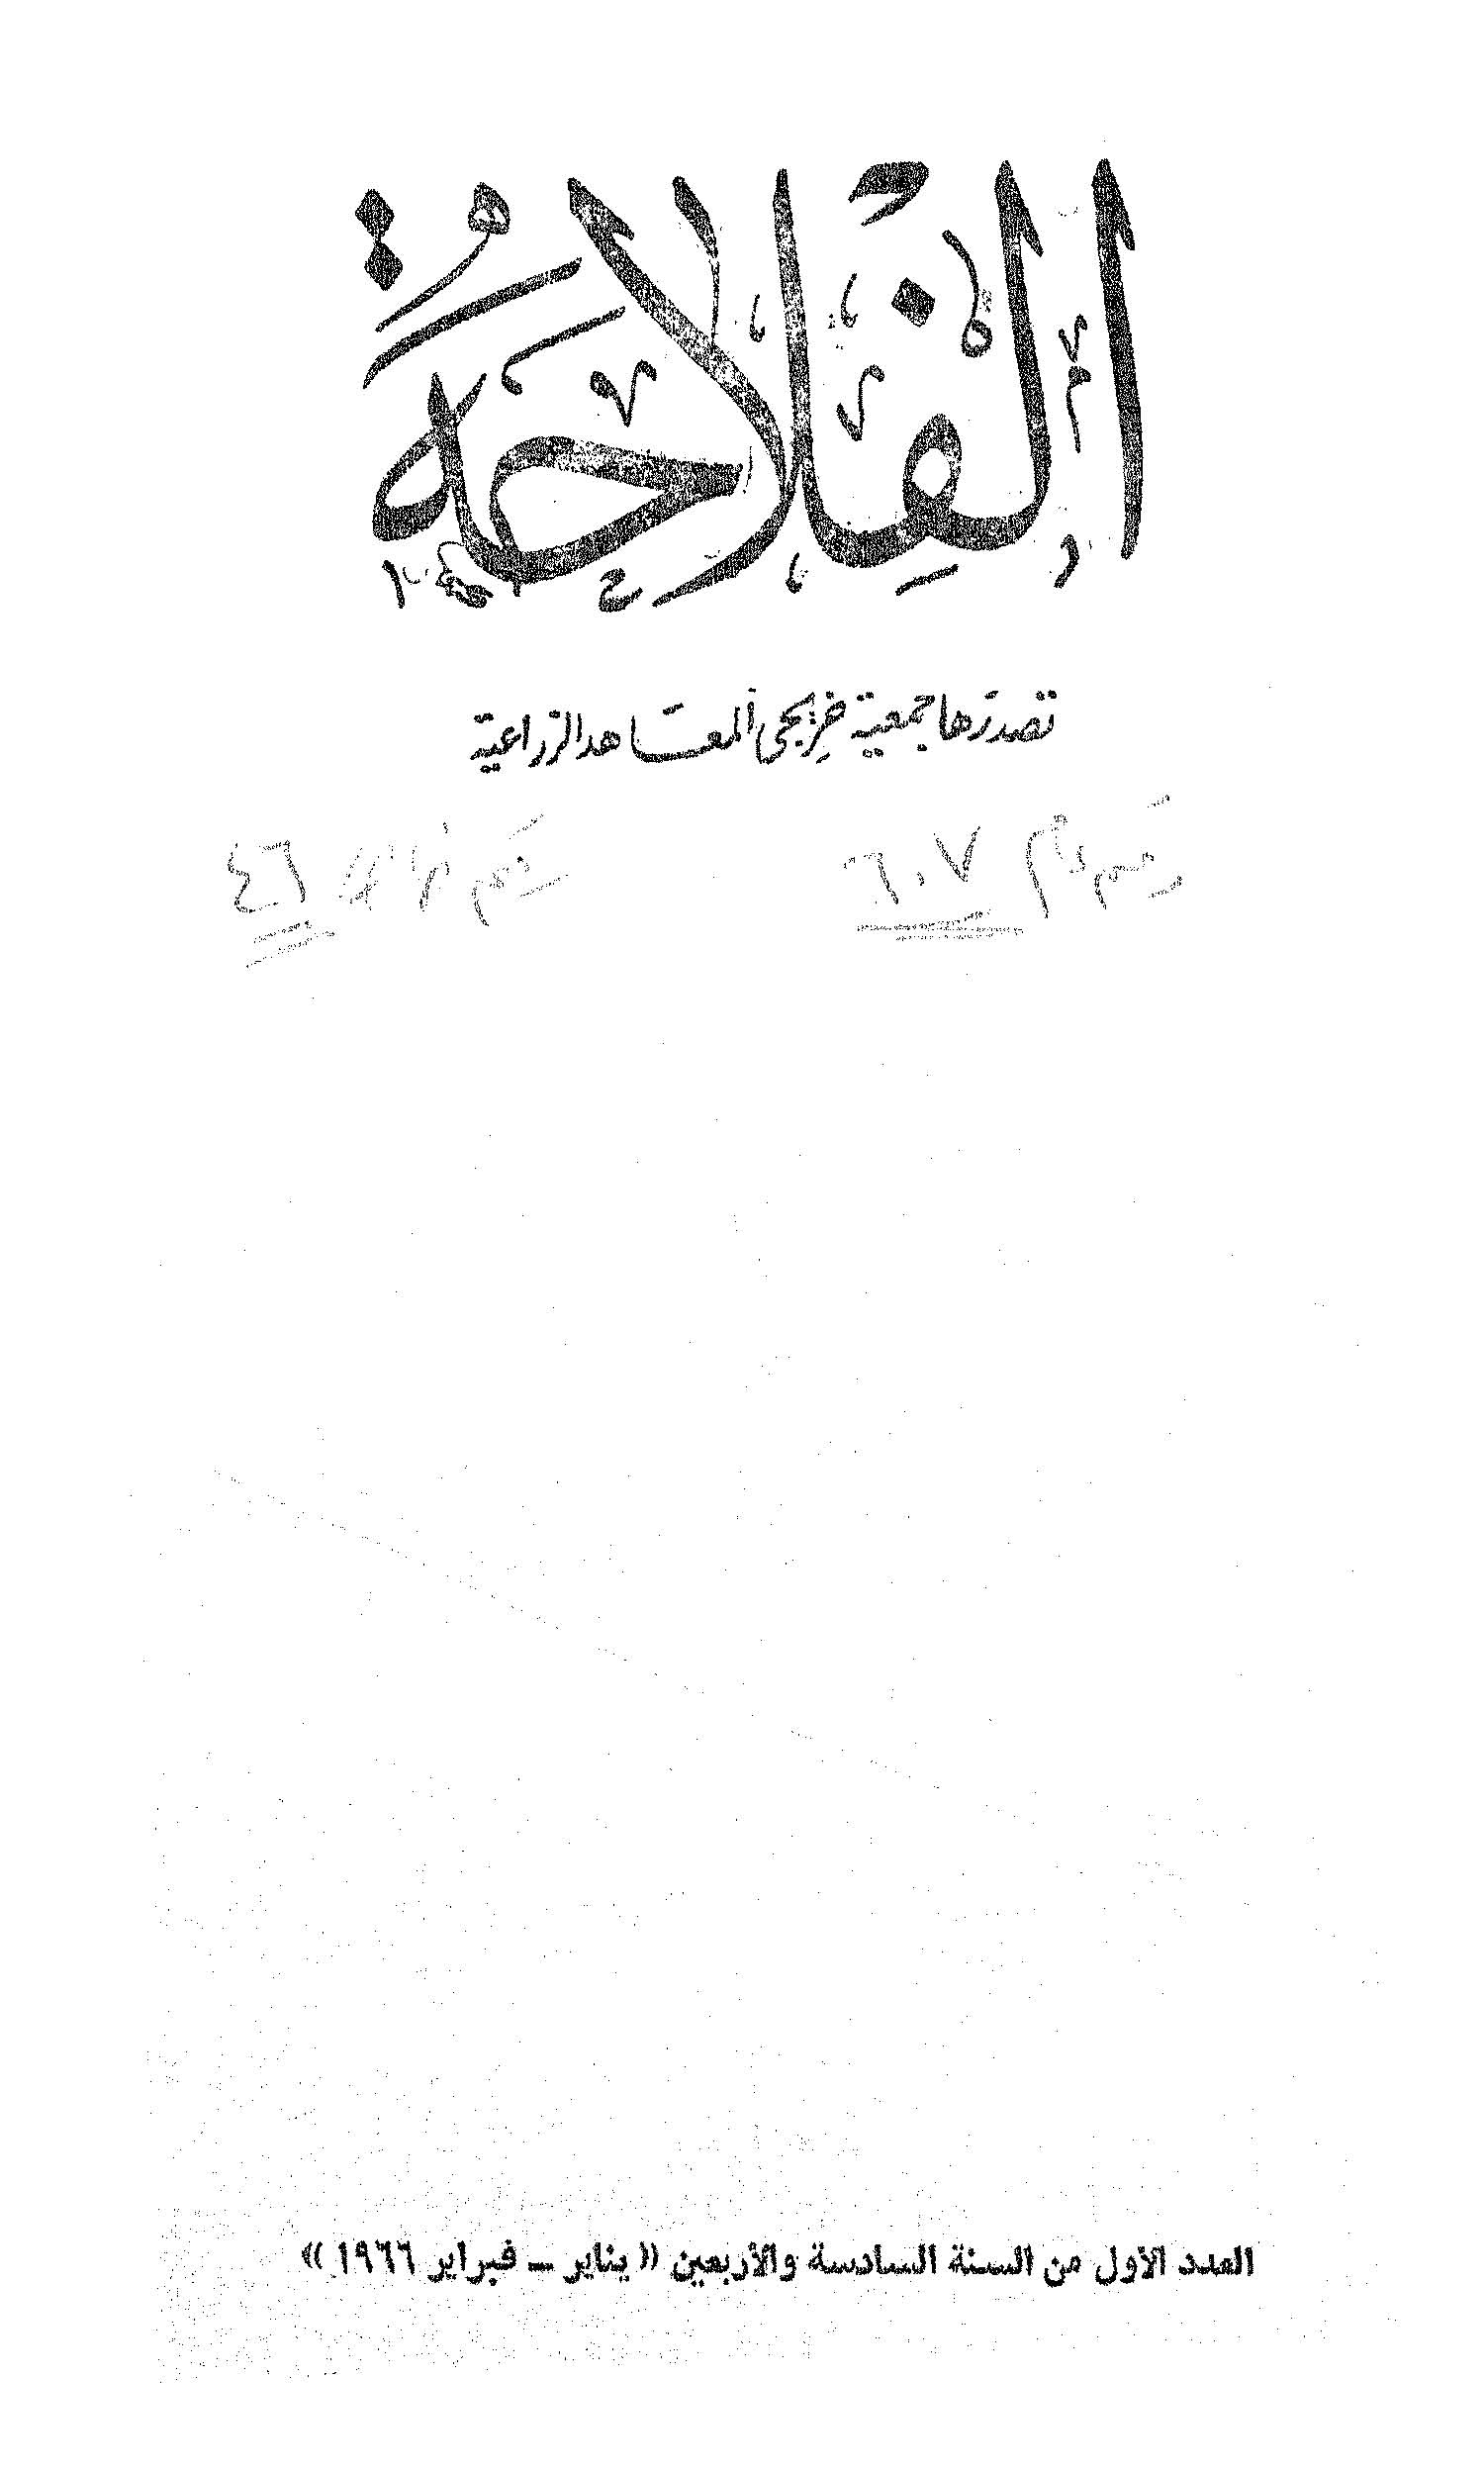 الفلاحة
تصدرها جمعية خريجى المعاهد الزراعية
رقم عام ٦٠٧
رقم ٤٦
العدد الأول من السنة السادسة والأربعين « يناير – فبراير ١٩٦٦ »